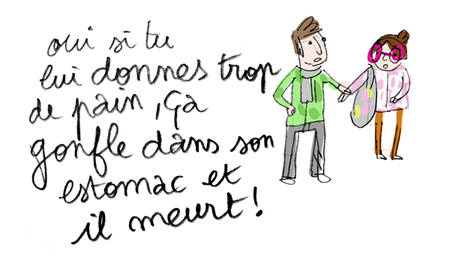 oui si tu
lui donnes trop
de pain, ça
gonfle dans son
estomac et
il meurt!